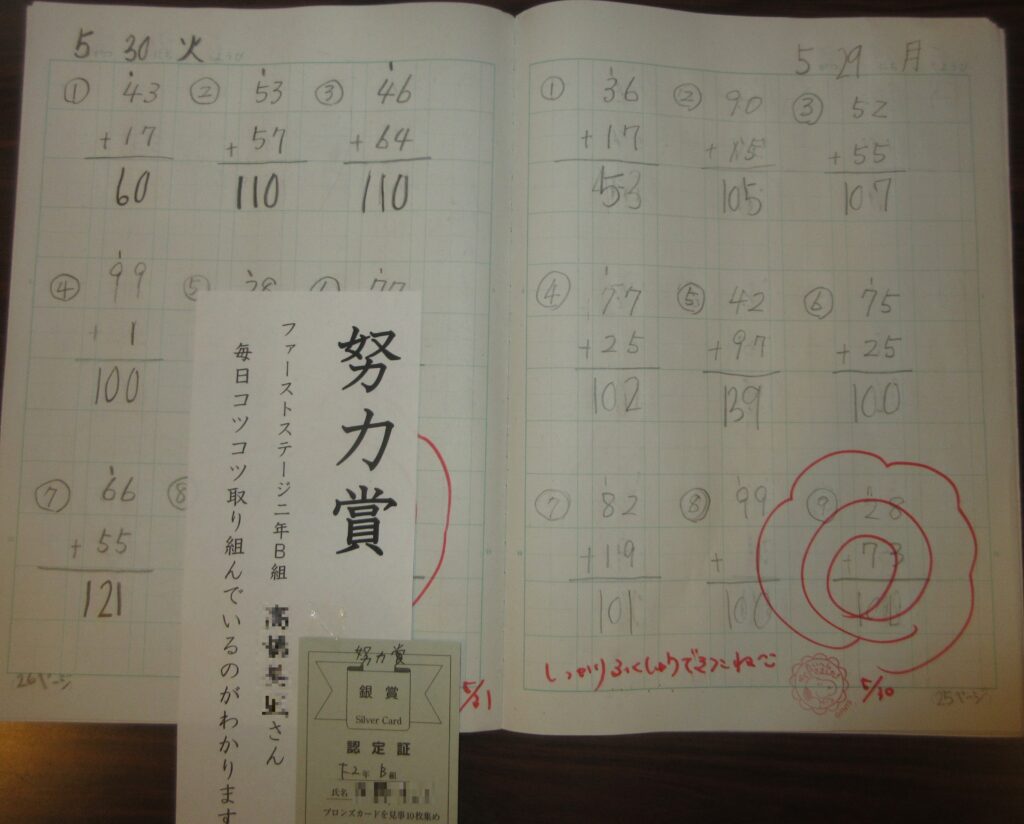 5がつ29にち月ようび
① 36 ② 90 ③ 52
+17 +15 +55
53 105 107
④ 77 ⑤ 42 ⑥ 75
+25 +97 +25
102 139 100
⑦ 82 ⑧ 99 ⑨ 28
+19 + +73
101 100
しっかりふくしゅうできたね
5/30
25ページ
5がつ30にち火ようび
① 43 ② 53 ③ 46
+17 +57 +64
60 110 110
④ 99 ⑤ 28 77
+1
100
⑦ 66 ⑧
+55
121
26ページ
5/31
努力賞
ファーストステージ二年B組 さん
毎日コツコツ取り組んでいるのがわかります
努力賞
銀賞
Silver Card
認定証
F2年 B組
氏名
ブロンズカードを見事10枚集め